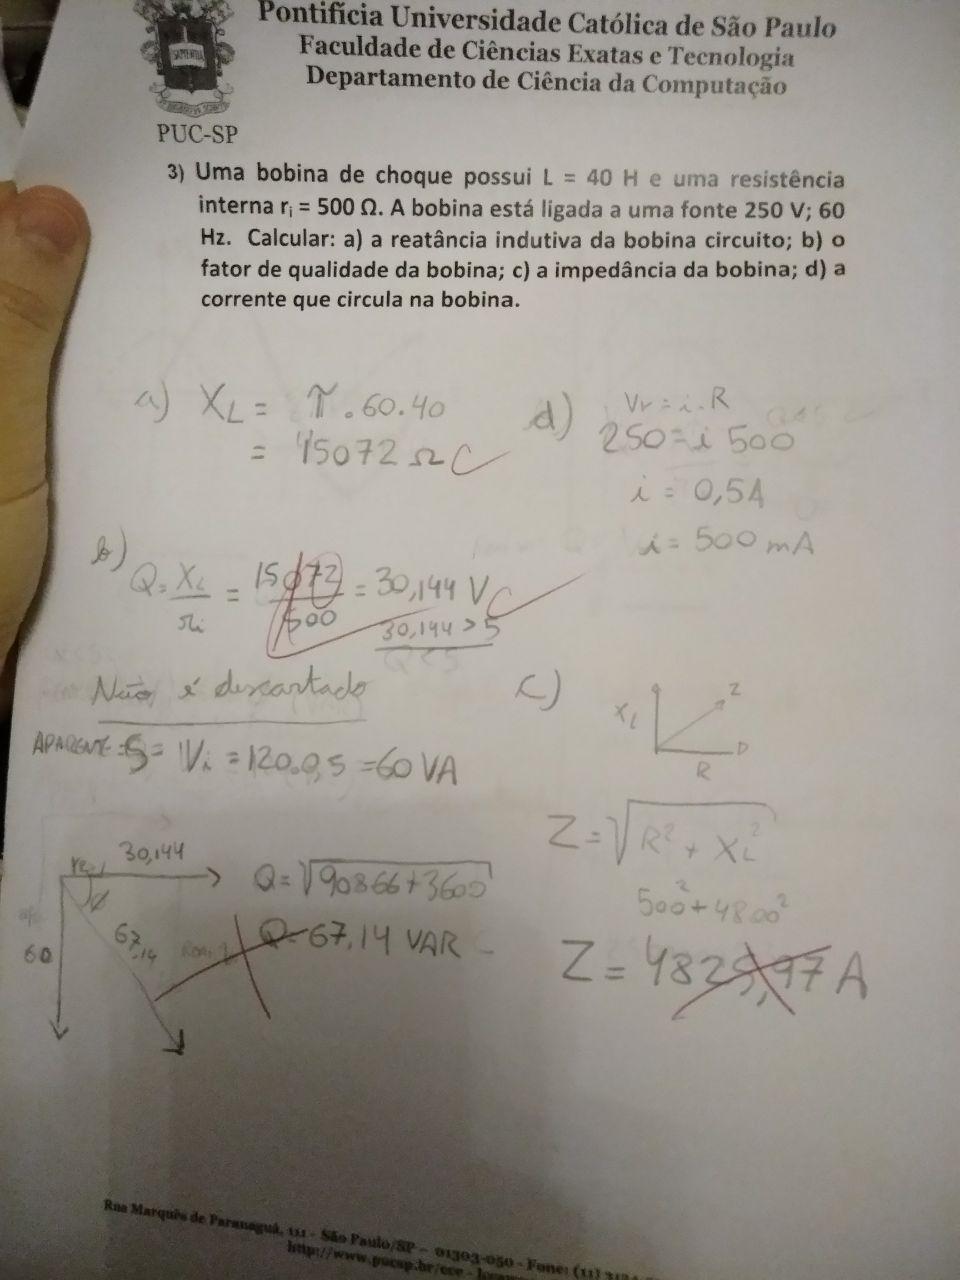 Pontifícia Universidade Católica de São Paulo
Faculdade de Ciências Exatas e Tecnologia
Departamento de Ciência da Computação
SAPIENTIA
PUC-SP
3) Uma bobina de choque possui L = 40 H e uma resistência
interna ri = 500 Ω. A bobina está ligada a uma fonte 250 V; 60
Hz. Calcular: a) a reatância indutiva da bobina circuito; b) o
fator de qualidade da bobina; c) a impedância da bobina; d) a
corrente que circula na bobina.
a) XL = π . 60 . 40
= 15072 Ω C
d) Vr = i . R
250 = i 500
i = 0,5A
i = 500 mA
b) Q = XL/ri = 15072/500 = 30,144 V C
30,144 > 5
Q < 5
Não é descartado
APARENTE = S = Vi = 120.0,5 = 60 VA
30,144
60
67,14
ϕ
Q = √90866+3600
Q = 67,14 VAR
c)
XL
Z
R
Z = √R² + XL²
500² + 4800²
Z = 4825,97 A
Rua Marquês de Paranaguá, 111 - São Paulo/SP – 01303-050 - Fone: (11)